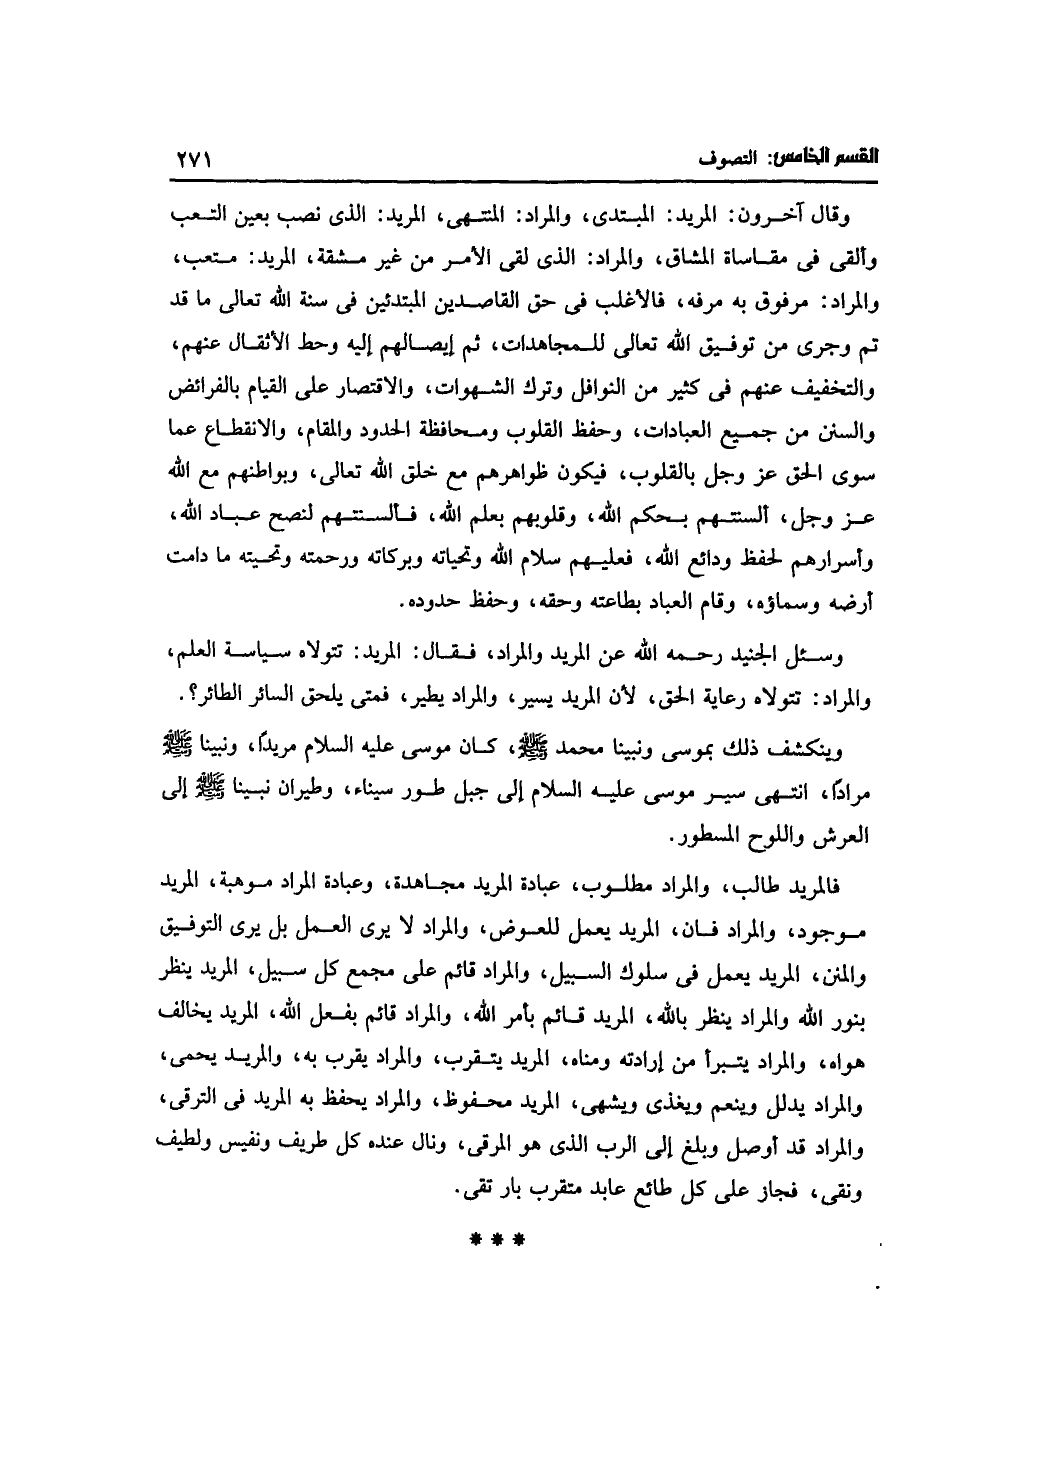 القسم الخامس: التصوف ٢٧١
وقال آخرون: المريد: المبتدى، والمراد: المنتهى، المريد: الذى نصب بعين التعب
وألقى فى مقاساة المشاق، والمراد: الذى لقى الأمر من غير مشقة، المريد: متعب،
والمراد: مرفوق به مرفه، فالأغلب فى حق القاصدين المبتدئين فى سنة الله تعالى ما قد
تم وجرى من توفيق الله تعالى للمجاهدات، ثم إيصالهم إليه وحط الأثقال عنهم،
والتخفيف عنهم فى كثير من النوافل وترك الشهوات، والاقتصار على القيام بالفرائض
والسنن من جميع العبادات، وحفظ القلوب ومحافظة الحدود والمقام، والانقطاع عما
سوى الحق عز وجل بالقلوب، فيكون ظواهرهم مع خلق الله تعالى، وبواطنهم مع الله
عز وجل، ألسنتهم بحكم الله، وقلوبهم بعلم الله، فألسنتهم لنصح عباد الله،
وأسرارهم لحفظ ودائع الله، فعليهم سلام الله وتحياته وبركاته ورحمته وتحيته ما دامت
أرضه وسماؤه، وقام العباد بطاعته وحقه، وحفظ حدوده.
وسئل الجنيد رحمه الله عن المريد والمراد، فقال: المريد: تتولاه سياسة العلم،
والمراد: تتولاه رعاية الحق، لأن المريد يسير، والمراد يطير، فمتى يلحق السائر الطائر؟.
وينكشف ذلك بموسى ونبينا محمد ﷺ، كان موسى عليه السلام مريدًا، ونبينا ﷺ
مرادًا، انتهى سير موسى عليه السلام إلى جبل طور سيناء، وطيران نبينا ﷺ إلى
العرش واللوح المسطور.
فالمريد طالب، والمراد مطلوب، عبادة المريد مجاهدة، وعبادة المراد موهبة، المريد
موجود، والمراد فان، المريد يعمل للعوض، والمراد لا يرى العمل بل يرى التوفيق
والمنن، المريد يعمل فى سلوك السبيل، والمراد قائم على مجمع كل سبيل، المريد ينظر
بنور الله والمراد ينظر بالله، المريد قائم بأمر الله، والمراد قائم بفعل الله، المريد يخالف
هواه، والمراد يتبرأ من إرادته ومناه، المريد يتقرب، والمراد يقرب به، والمريد يحمى،
والمراد يدلل وينعم ويغذى ويشهى، المريد محفوظ، والمراد يحفظ به المريد فى الترقى،
والمراد قد أوصل وبلغ إلى الرب الذى هو المرقى، ونال عنده كل طريف ونفيس ولطيف
ونقى، فجاز على كل طائع عابد متقرب بار تقى.
* * *